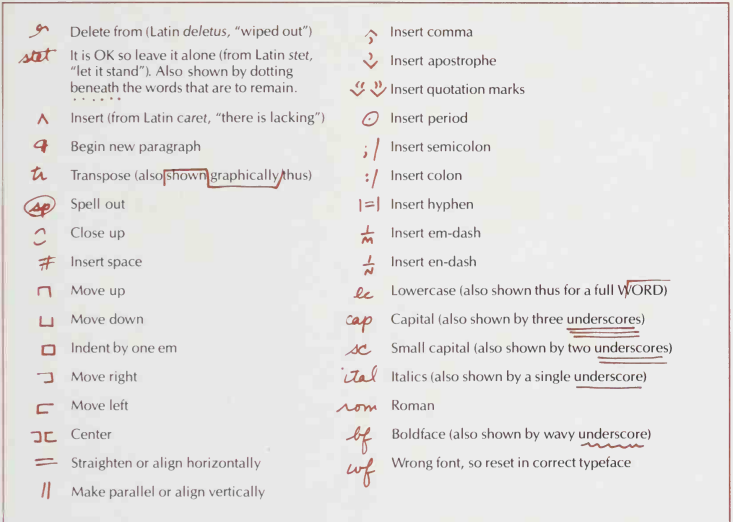 Delete from (Latin deletus, “wiped out”)
stet It is OK so leave it alone (from Latin stet,
“let it stand”). Also shown by dotting
beneath the words that are to remain.
^ Insert (from Latin caret, “there is lacking”)
¶ Begin new paragraph
tr Transpose (also shown graphically thus)
sp Spell out
Close up
# Insert space
Move up
Move down
Indent by one em
Move right
Move left
Center
Straighten or align horizontally
|| Make parallel or align vertically
, Insert comma
’ Insert apostrophe
“ ” Insert quotation marks
. Insert period
;/ Insert semicolon
:/ Insert colon
|=| Insert hyphen
1/M Insert em-dash
1/N Insert en-dash
lc Lowercase (also shown thus for a full WORD)
cap Capital (also shown by three underscores)
sc Small capital (also shown by two underscores)
ital Italics (also shown by a single underscore)
rom Roman
bf Boldface (also shown by wavy underscore)
wf Wrong font, so reset in correct typeface